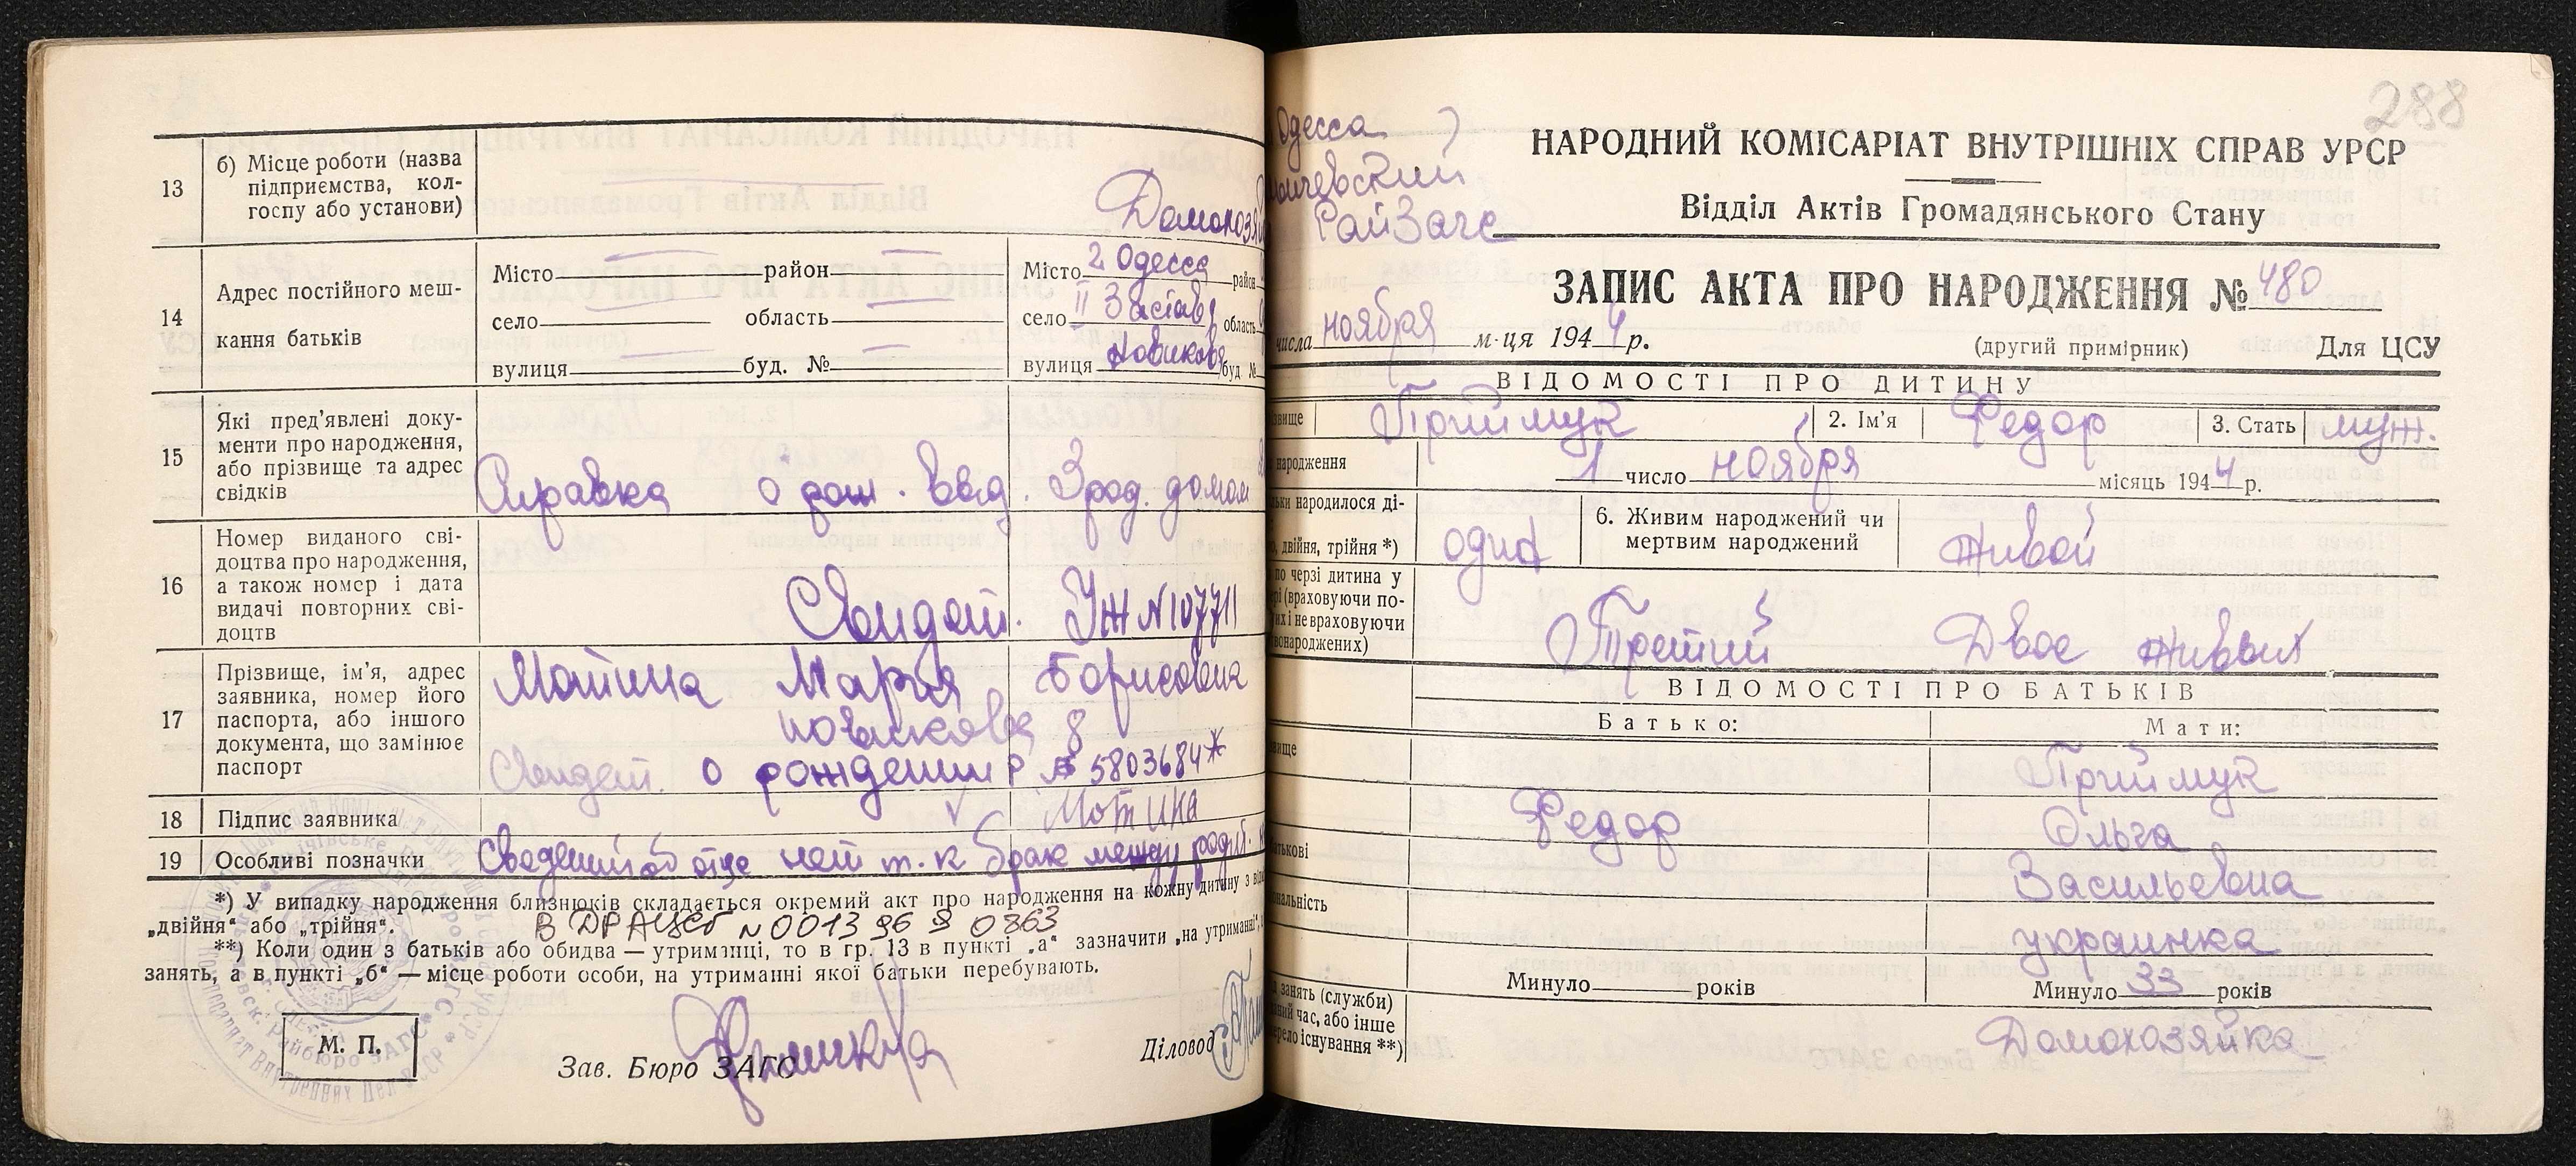 13
б) Місце роботи (назва
підприємства, кол-
госпу або установи)
Домохозяй
14
Адрес постійного меш-
кання батьків
Місто район
село область
вулиця буд. №
Місто г Одесса район
село II Застава область
вулиця Новикова буд №
15
Які пред'явлені доку-
менти про народження,
або прізвище та адрес
свідків
Справка о рож. выд. 3 род. домом
16
Номер виданого сві-
доцтва про народження,
а також номер і дата
видачі повторних сві-
доцтв
Свидет. УЖ N 107711
17
Прізвище, ім'я, адрес
заявника, номер його
паспорта, або іншого
документа, що замінює
паспорт
Мотина Мария Борисовна
Новикова 8
Свидет. о рождении № 5803684
18
Підпис заявника
Мотина
19
Особливі позначки
Сведений об отце нет т. к брак между родит.
*) У випадку народження близнюків складається окремий акт про народження на кожну дитину з
„двійня“ або „трійня“.
В ДРАЦСб N 0013 96 0363
**) Коли один з батьків або обидва — утриманці, то в гр. 13 в пункті „а“ зазначити „на утриманні“,
занять, а в пункті „б“ — місце роботи особи, на утриманні якої батьки перебувають.
М. П.
Зав. Бюро ЗАГС
Діловод
288
Одесса
РайЗагс
НАРОДНИЙ КОМІСАРІАТ ВНУТРІШНІХ СПРАВ УРСР
Відділ Актів Громадянського Стану
ЗАПИС АКТА ПРО НАРОДЖЕННЯ № 480
числа ноября м-ця 1944 р.
(другий примірник) Для ЦСУ
ВІДОМОСТІ ПРО ДИТИНУ
звище Приймук 2. Ім'я Федор 3. Стать муж.
народження 1 число ноября місяць 1944 р.
ьки народилося ді-
о, двійня, трійня *)
одно
6. Живим народжений чи
мертвим народжений
живой
по черзі дитина у
рі (враховуючи по-
их і не враховуючи
вонароджених)
Третий Двое живых
ВІДОМОСТІ ПРО БАТЬКІВ
Батько: Мати:
вище Приймук
Федор Ольга
атькові Васильевна
нальність украинка
Минуло років Минуло 33 років
занять (служби)
ний час, або інше
ерело існування **)
Домохозяйка